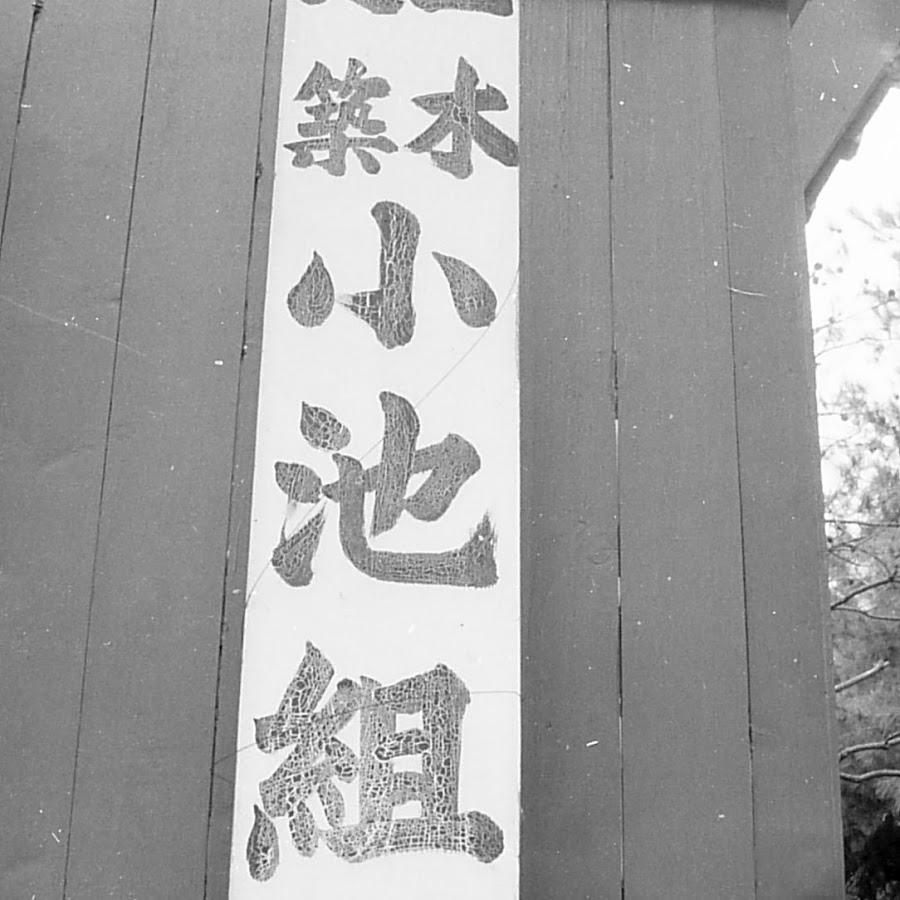 木
築
小池組